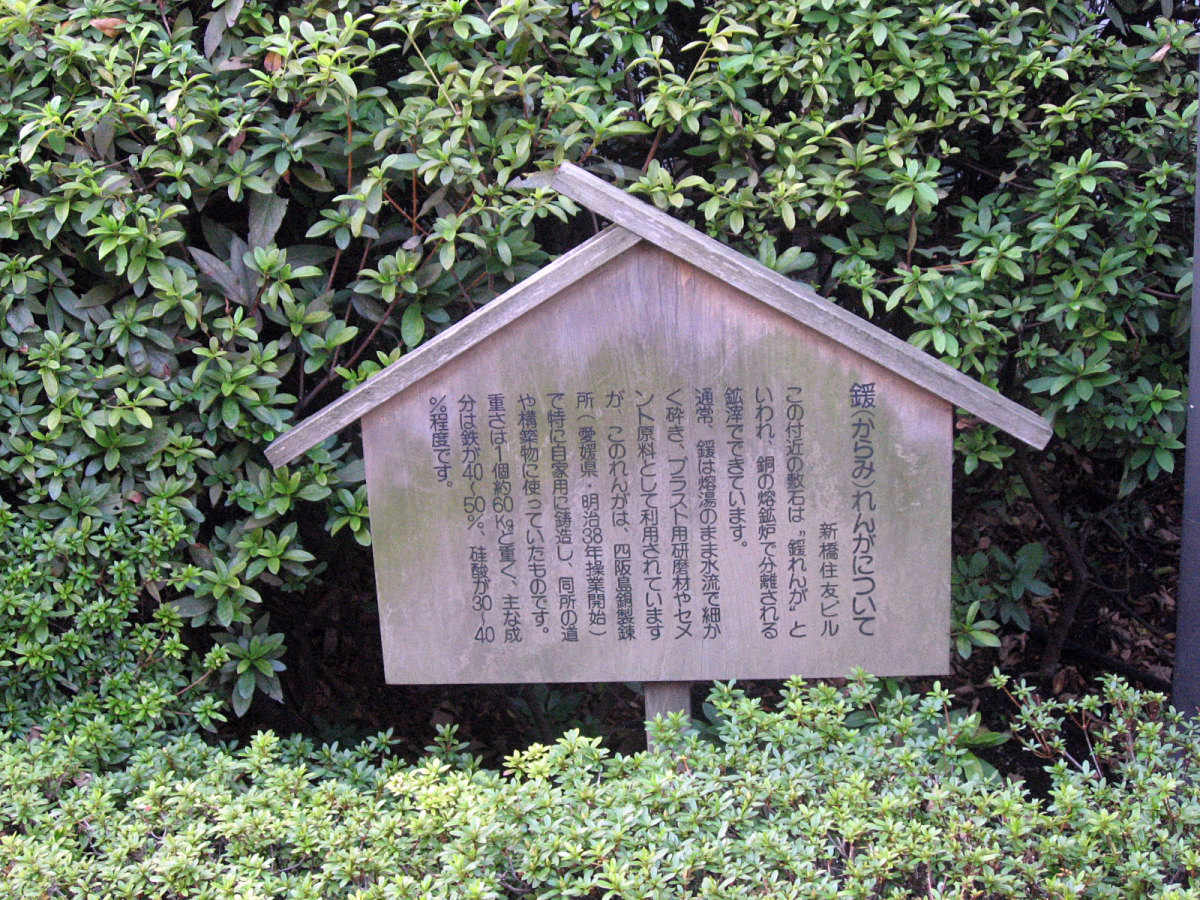 鍰(からみ)れんがについて
新橋住友ビル
この付近の敷石は〝鍰れんが〟と
いわれ、銅の熔鉱炉で分離される
鉱滓でできています。
通常、鍰は熔湯のまま水流で細か
く砕き、ブラスト用研磨材やセメ
ント原料として利用されています
が、このれんがは、四阪島銅製錬
所(愛媛県・明治38年操業開始)
で特に自家用に鋳造し、同所の道
や構築物に使っていたものです。
重さは1個約60Kgと重く、主な成
分は鉄が40~50%、硅酸が30~40
%程度です。